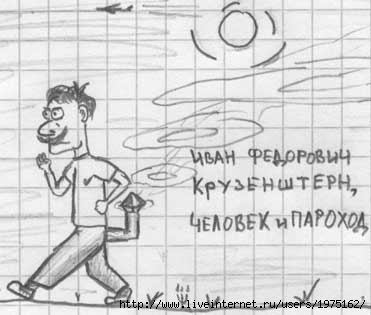 ИВАН ФЕДОРОВИЧ
КРУЗЕНШТЕРН,
ЧЕЛОВЕК и ПАРОХОД
http://www.liveinternet.ru/users/1975162/